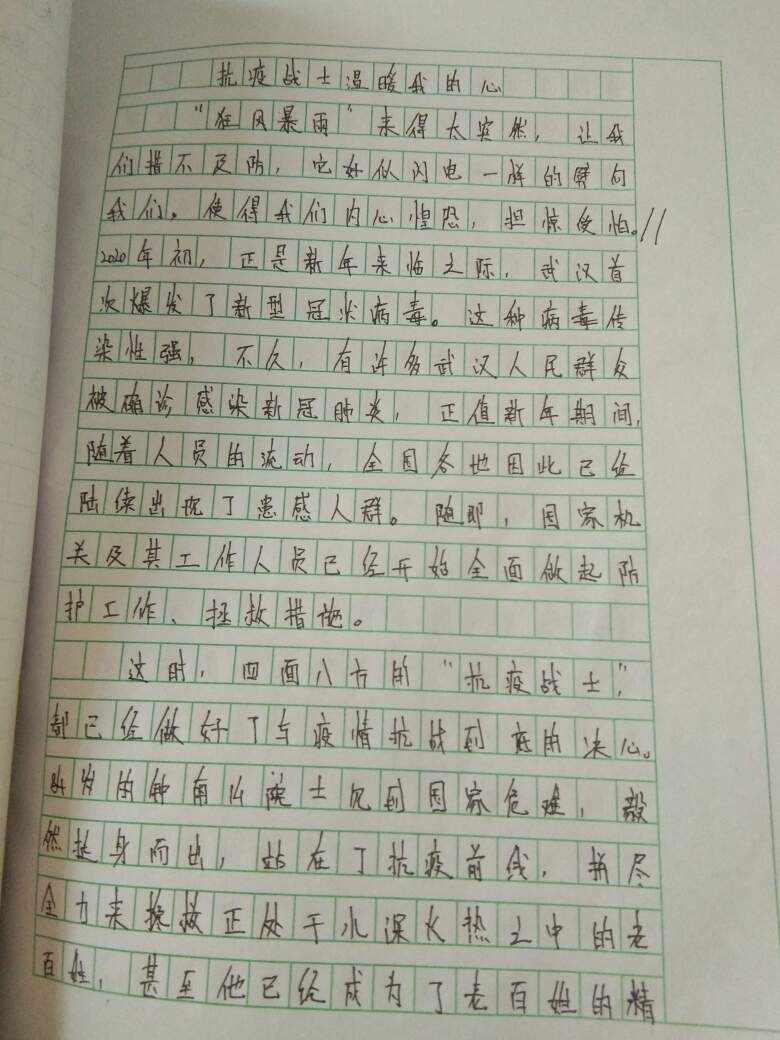 抗疫战士温暖我的心
“狂风暴雨”来得太突然，让我
们措不及防，它好似闪电一样的劈向
我们。使得我们内心惶恐，担惊受怕。//
2020年初，正是新年来临之际，武汉首
次爆发了新型冠状病毒。这种病毒传
染性强，不久，有许多武汉人民群众
被确诊感染新冠肺炎，正值新年期间，
随着人员的流动，全国各地因此已经
陆续出现了患感人群。随即，国家机
关及其工作人员已经开始全面做起防
护工作、拯救措施。
这时，四面八方的“抗疫战士”，
都已经做好了与疫情抗战到底的决心。
84岁的钟南山院士见到国家危难，毅
然挺身而出，站在了抗疫前线，拼尽
全力来挽救正处于水深火热之中的老
百姓，甚至他已经成为了老百姓的精